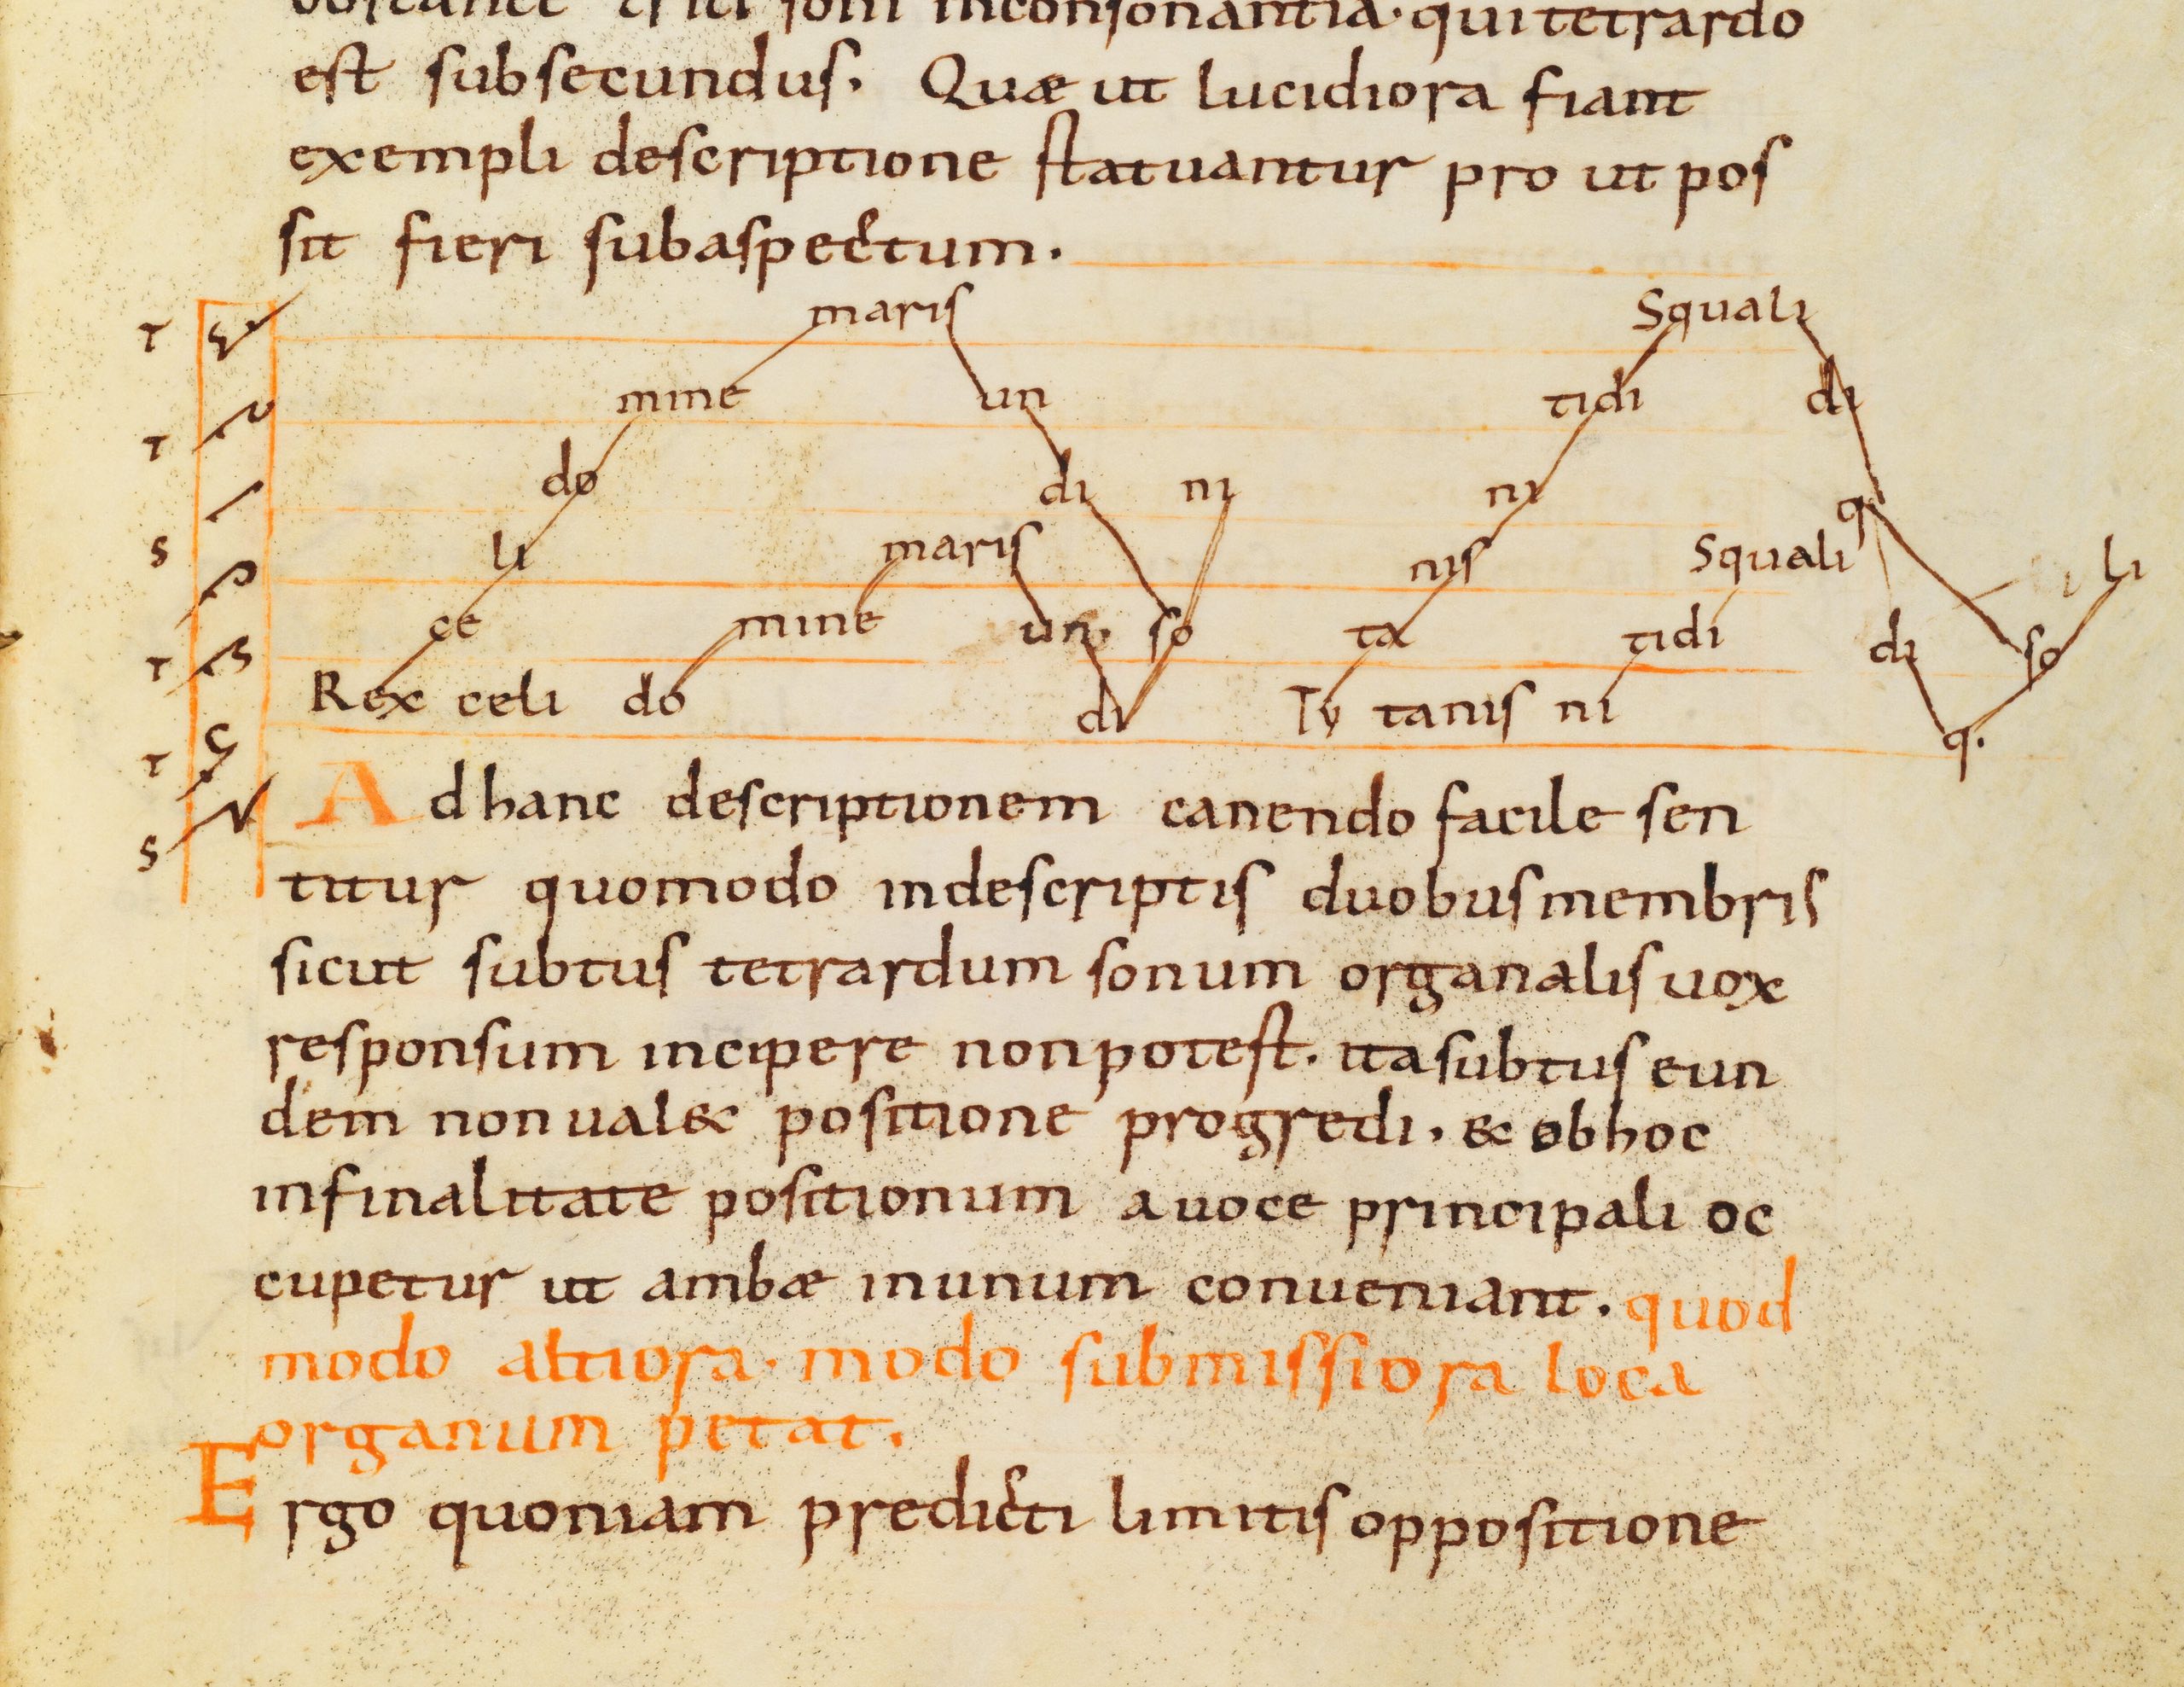 inconsonantia. qui tetrardo
est subsecundus. Quæ ut lucidiora fiant
exempli descriptione statuantur pro ut pos
sit fieri sub aspectum.
maris Squali
T
mine un tidi di
T
do di ni ni q
S
li maris nis Squali li
T
ce mine un so ta tidi di so
Rex celi do di Ty tanis ni q.
T
Ad hanc descriptionem canendo facile sen
S
titur quomodo in descriptis duobus membris
sicut subtus tetrardum sonum organalis uox
responsum incipere non potest. ita subtus eun
dem non ual& positione progredi. & ob hoc
in finalitate positionum a uoce principali oc
cupetur ut ambæ in unum conueniant. quod
modo altiora. modo submissiora loca
organum petat.
Ergo quoniam predicti limitis oppositione